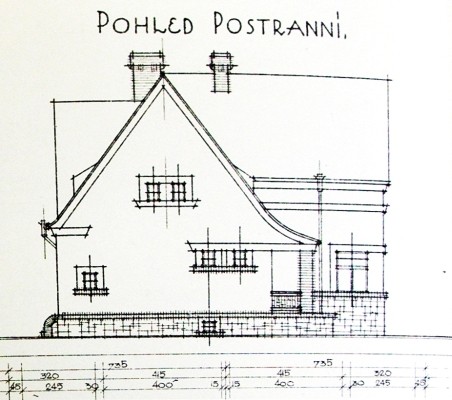 POHLED POSTRANNÍ.
735 735
320 45 45 320
45 245 30 400 15 15 400 30 245 45